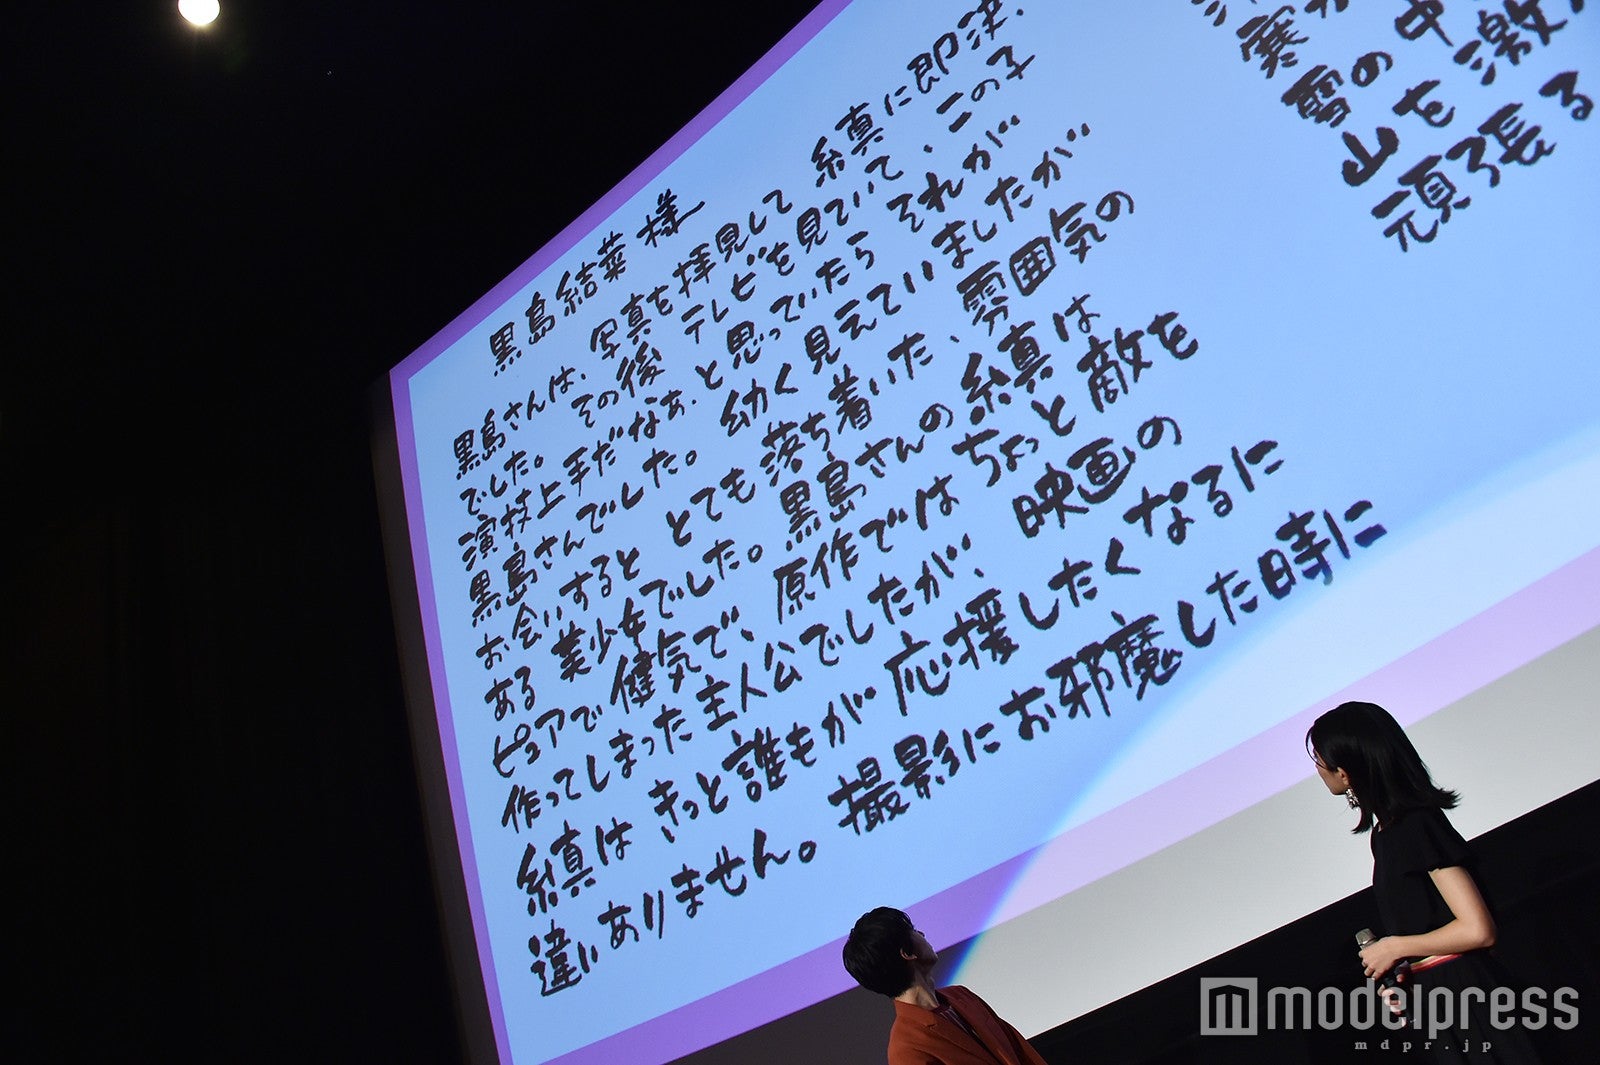 黒島結菜様
黒島さんは、写真を拝見して 糸真に即決、
でした。その後 テレビを見ていて、この子
演技上手だなぁ、と思っていたら それが
黒島さんでした。幼く見えていましたが
お会いすると とても落ち着いた、雰囲気の
ある 美少女でした。黒島さんの糸真は
ピュアで健気で、原作では ちょっと 敵を
作ってしまった主人公でしたが、映画の
糸真は きっと誰もが 応援したくなるに
違いありません。撮影にお邪魔した時に
雪の中
山を激
頑張る
modelpress
mdpr.jp